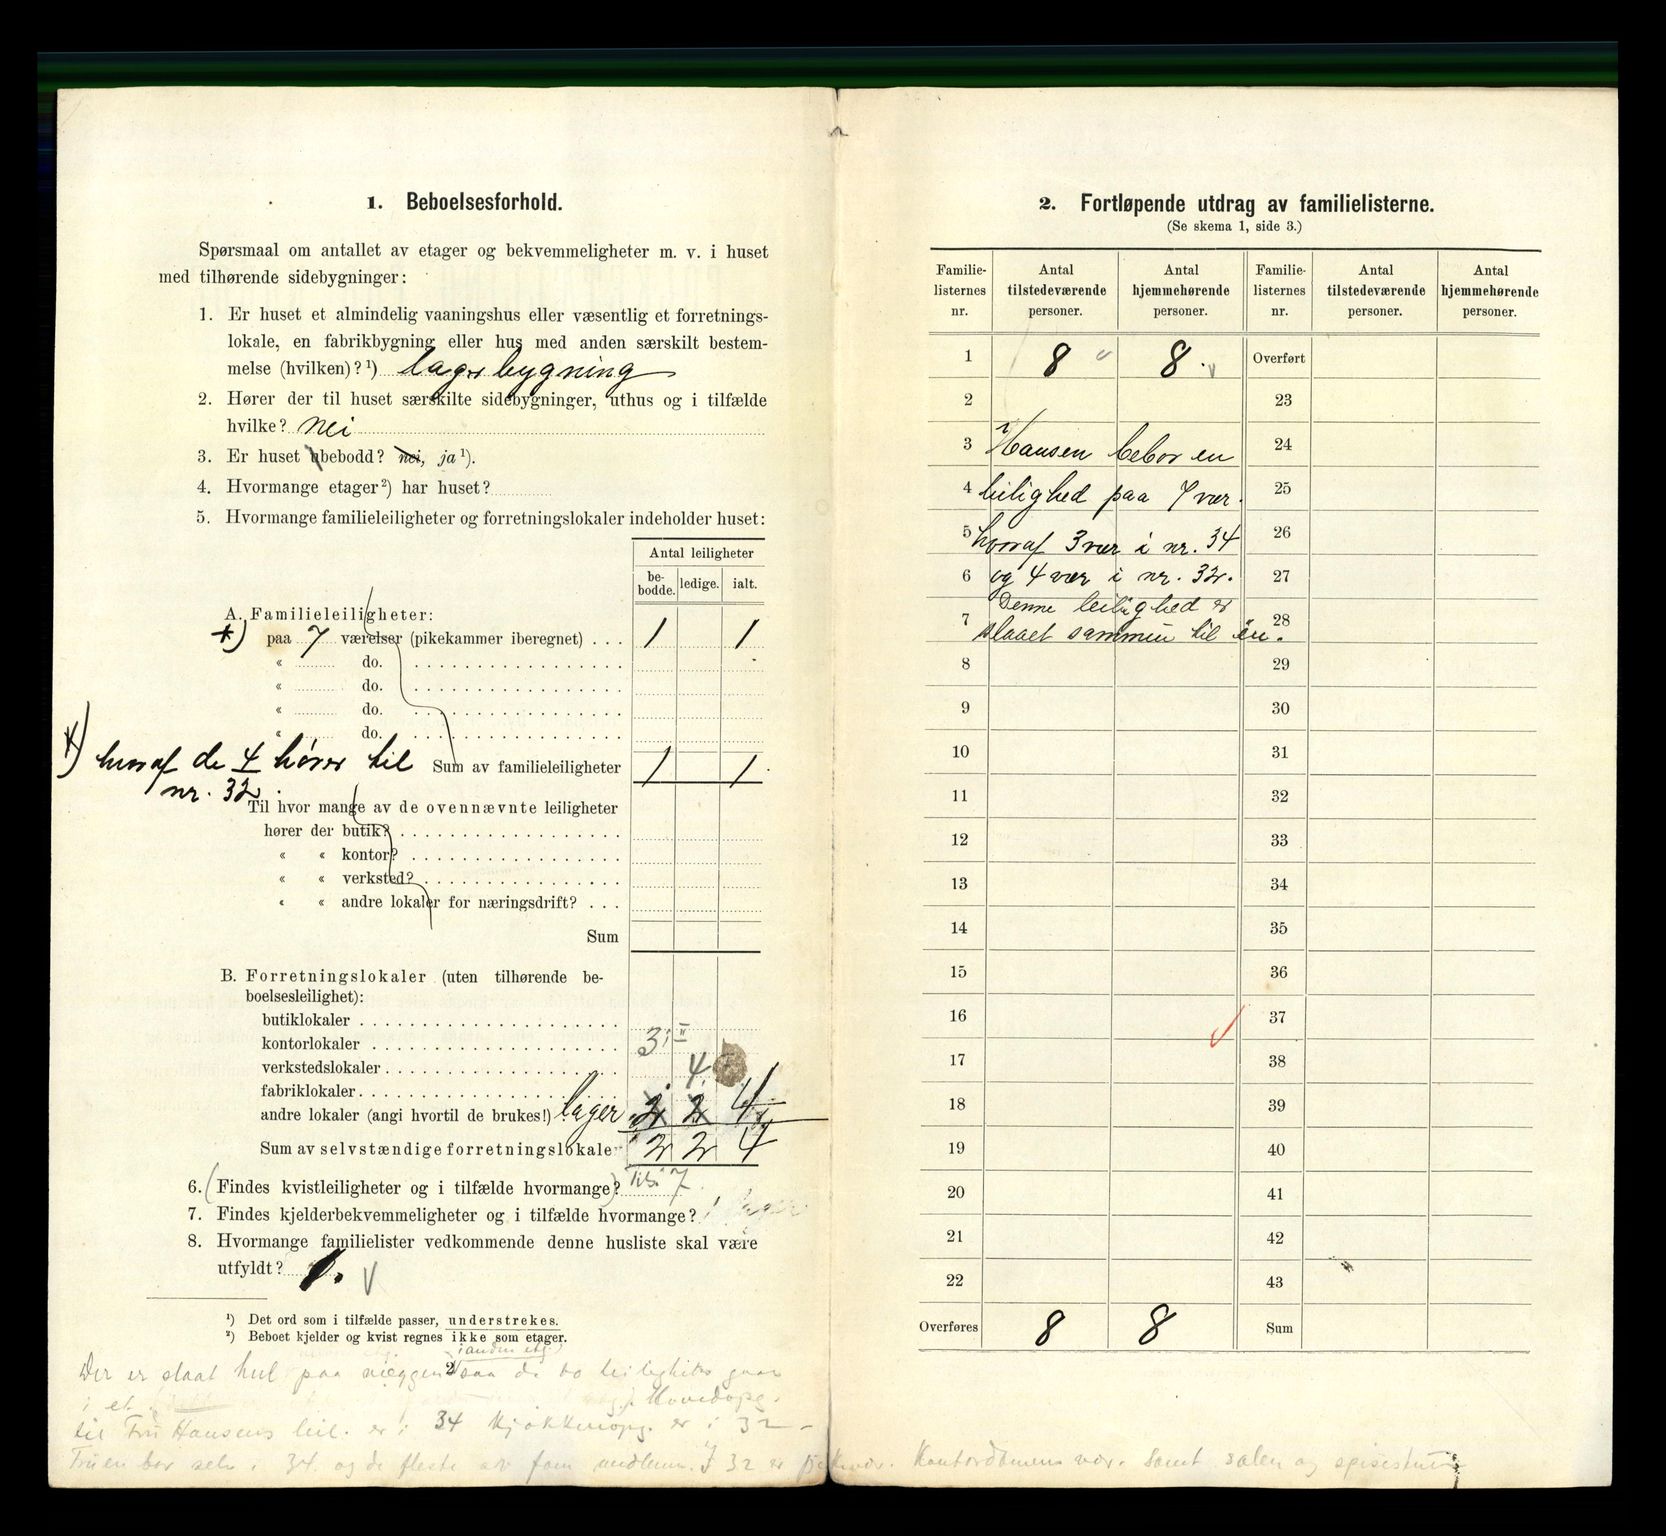 1. Beboelsesforhold.
Spørsmaal om antallet av etager og bekvemmeligheter m. v. i huset
med tilhørende sidebygninger:
1. Er huset et almindelig vaaningshus eller væsentlig et forretnings-
lokale, en fabrikbygning eller hus med anden særskilt bestem-
melse (hvilken)? ¹) lagerbygning
2. Hører der til huset særskilte sidebygninger, uthus og i tilfælde
hvilke? nei
3. Er huset ubebodd? nei, ja ¹).
4. Hvormange etager ²) har huset?
5. Hvormange familieleiligheter og forretningslokaler indeholder huset:
Antal leiligheter
be-
bodde. ledige. ialt.
A. Familieleiligheter:
*) paa 7 værelser (pikekammer iberegnet) . . . 1 1
« do.
« do.
« do.
« do.
*) hvoraf de 4 hører til
nr. 32.
Sum av familieleiligheter 1 1
Til hvor mange av de ovennævnte leiligheter
hører der butik?
« « kontor?
« « verksted?
« « andre lokaler for næringsdrift? . . .
Sum
B. Forretningslokaler (uten tilhørende be-
boelsesleilighet):
butiklokaler
kontorlokaler 3; II
verkstedslokaler 4
fabriklokaler
andre lokaler (angi hvortil de brukes!) lager 2 2 4
Sum av selvstændige forretningslokaler 2 2 4
6. (Findes kvistleiligheter og i tilfælde hvormange)? 7
7. Findes kjelderbekvemmeligheter og i tilfælde hvormange? 1 lager
8. Hvormange familielister vedkommende denne husliste skal være
utfyldt? 1.
¹) Det ord som i tilfælde passer, understrekes.
²) Beboet kjelder og kvist regnes ikke som etager.
i anden etg.
Der er slaat hul paa væggen saa de to leiligheter gaar
i et. Hovedopg.
til Fru Hansens leil. er i 34 Kjøkkenopg. er i 32 -
Fruen bor selv i 34. og de fleste av fam medlem. I 32 er Kontordamens vær. samt salen og spisestuen
2
2. Fortløpende utdrag av familielisterne.
(Se skema 1, side 3.)
Familie-
listernes
nr.
Antal
tilstedeværende
personer.
Antal
hjemmehørende
personer.
Familie-
listernes
nr.
Antal
tilstedeværende
personer.
Antal
hjemmehørende
personer.
1 8 8 Overført
2 23
3 Hansen bebor en 24
4 leilighed paa 7 vær. 25
5 hvoraf 3 vær i nr. 34 26
6 og 4 vær i nr. 32. 27
Denne leilighed er
7 slaaet sammen til én. 28
8 29
9 30
10 31
11 32
12 33
13 34
14 35
15 36
16 37
17 38
18 39
19 40
20 41
21 42
22 43
Overføres 8 8 Sum